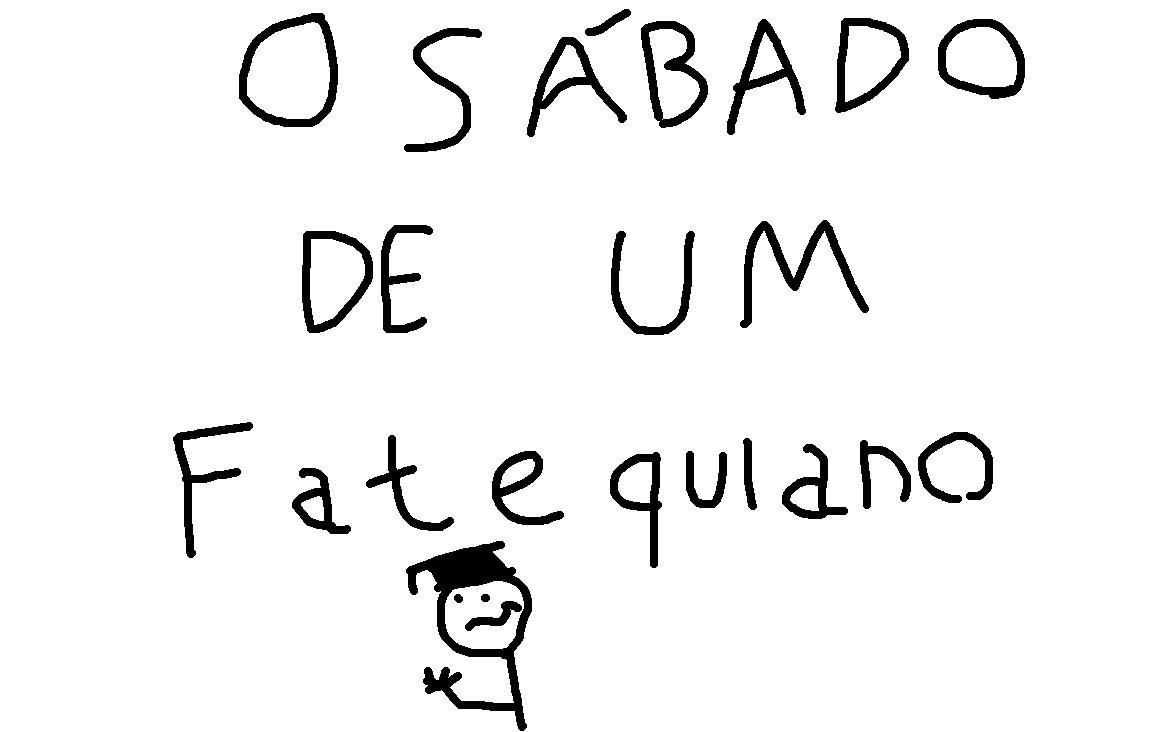 O SÁBADO
DE UM
Fatequiano